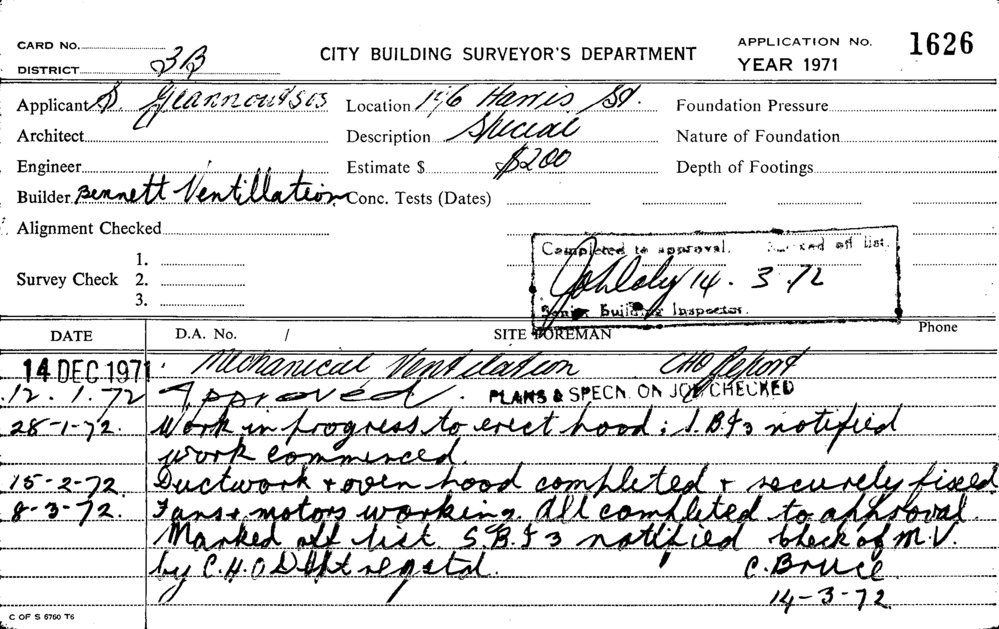 CARD No.
DISTRICT 3B
CITY BUILDING SURVEYOR'S DEPARTMENT
APPLICATION No. 1626
YEAR 1971
Applicant S. Giannoutsos Location 196 Harris St. Foundation Pressure
Architect Description Special Nature of Foundation
Engineer Estimate $ $200 Depth of Footings
Builder Bennett Ventillation Conc. Tests (Dates)
Alignment Checked
Survey Check 1.
2.
3.
Completed to approval. Marked off list.
14.3.72
Senior Building Inspector.
DATE D.A. No. / SITE FOREMAN Phone
14 DEC 1971 Mechanical Ventilation CHO Report
12.1.72 Approved. PLANS & SPECN. ON JOB CHECKED
28-1-72. Work in progress to erect hood; S.B.I 3 notified
work commenced.
15-2-72. Ductwork + oven hood completed + securely fixed
8-3-72. Fans + motors working. All completed to approval.
Marked off list. S.B.I 3 notified check of M.V.
by C.H.O Dept
C. Bruce
14-3-72
C OF S 6760 T6